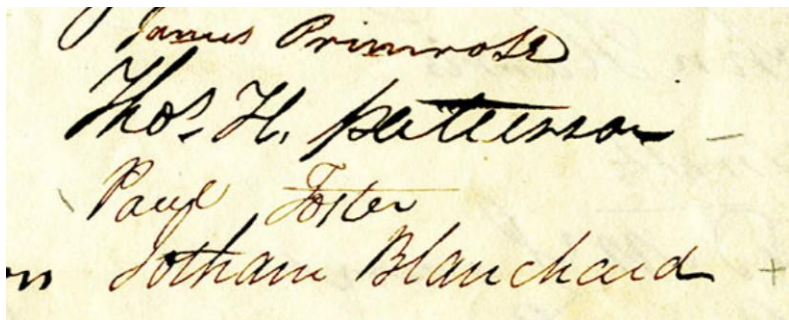 James Primrose
Thos. H. patterson
Paul Foster
Jotham Blanchard